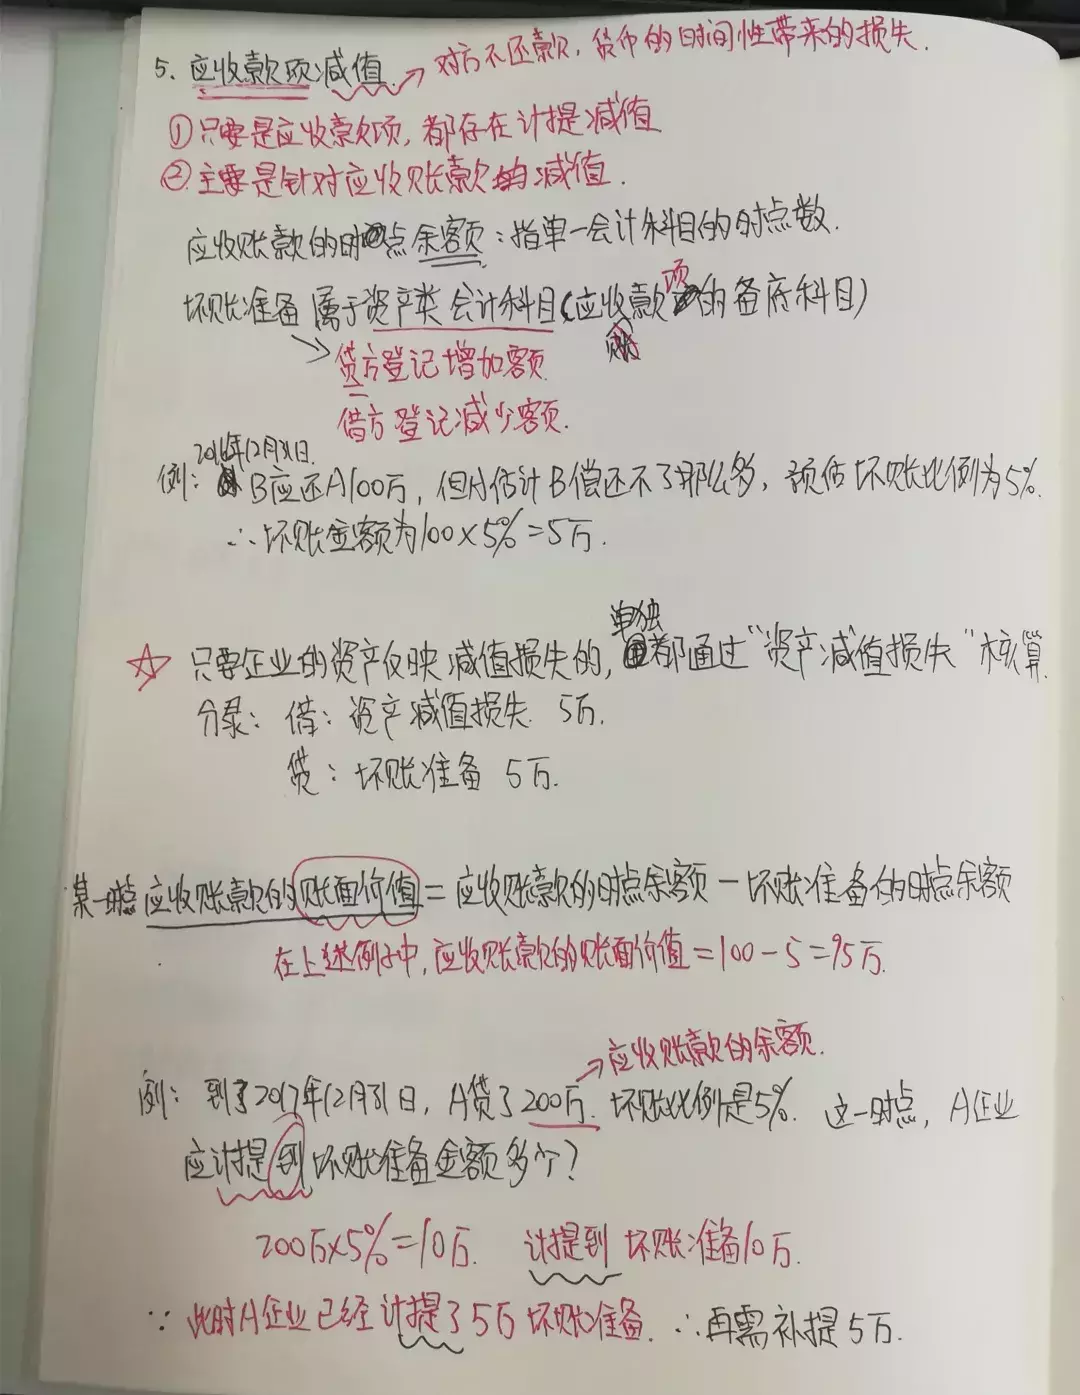 5、应收款项减值 → 对方不还款，货币的时间性带来的损失.
①只要是应收款项，都存在计提减值
②主要是针对应收账款的减值.
应收账款的时点余额：指单一会计科目的时点数.
坏账准备 属于资产类会计科目（应收款项的备底科目）
贷方登记增加额
借方登记减少额.
2016年12月31日.
例：B应还A100万，但A估计B偿还不了那么多，预估坏账比例为5%.
∴坏账金额为100×5%=5万.
单独
☆ 只要企业的资产仅映减值损失的，都通过“资产减值损失”核算
分录：借：资产减值损失 5万.
贷：坏账准备 5万.
某一时点应收账款的账面价值=应收账款的时点余额-坏账准备的时点余额
在上述例子中，应收账款的账面价值=100-5=95万.
→应收账款的余额.
例：到了2017年12月31日，A贷了200万. 坏账比例是5%. 这一时点，A企业
应计提到坏账准备金额多少？
200万×5%=10万. 计提到坏账准备10万.
∵此时A企业已经计提了5万坏账准备. ∴再需补提5万.